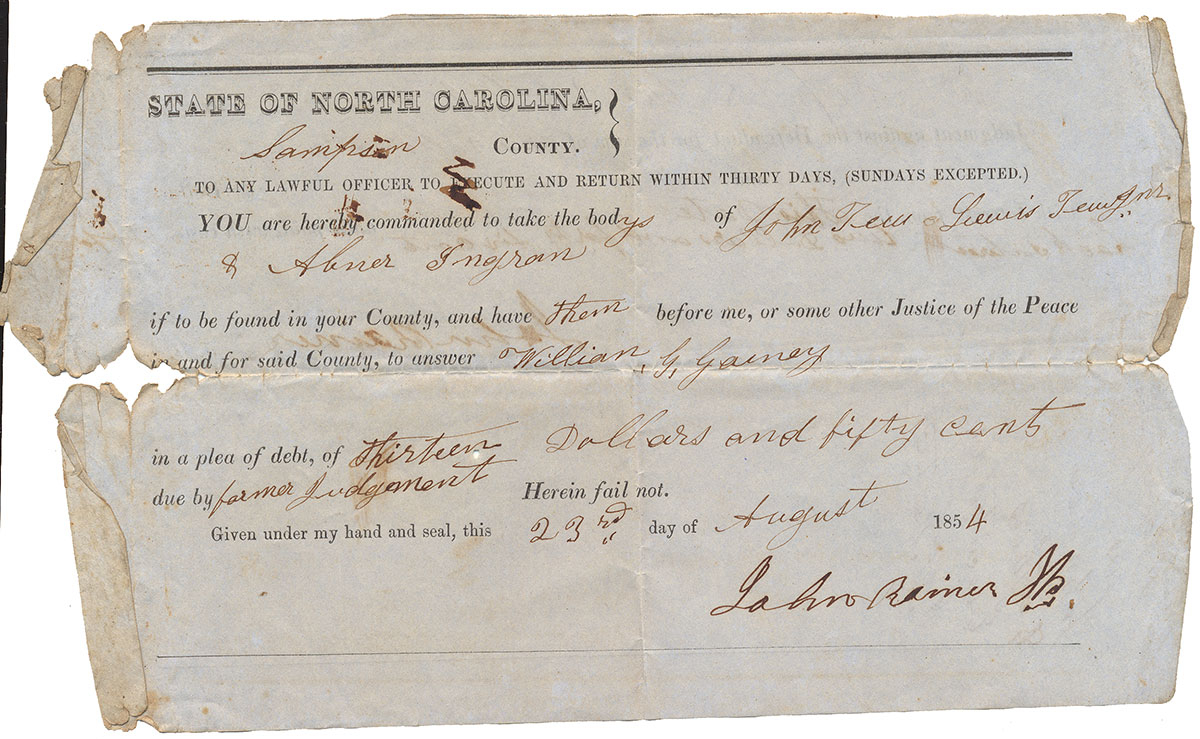 STATE OF NORTH CAROLINA,
Sampson COUNTY.
TO ANY LAWFUL OFFICER TO EXECUTE AND RETURN WITHIN THIRTY DAYS, (SUNDAYS EXCEPTED.)
YOU are hereby commanded to take the bodys of John Tew Lewis Tew Jnr
& Abner Ingran
if to be found in your County, and have them before me, or some other Justice of the Peace
in and for said County, to answer Willian G, Gainey
in a plea of debt, of thirteen Dollars and fifty cents
due by former Judgement Herein fail not.
Given under my hand and seal, this 23rd day of August 1854
John Rainer